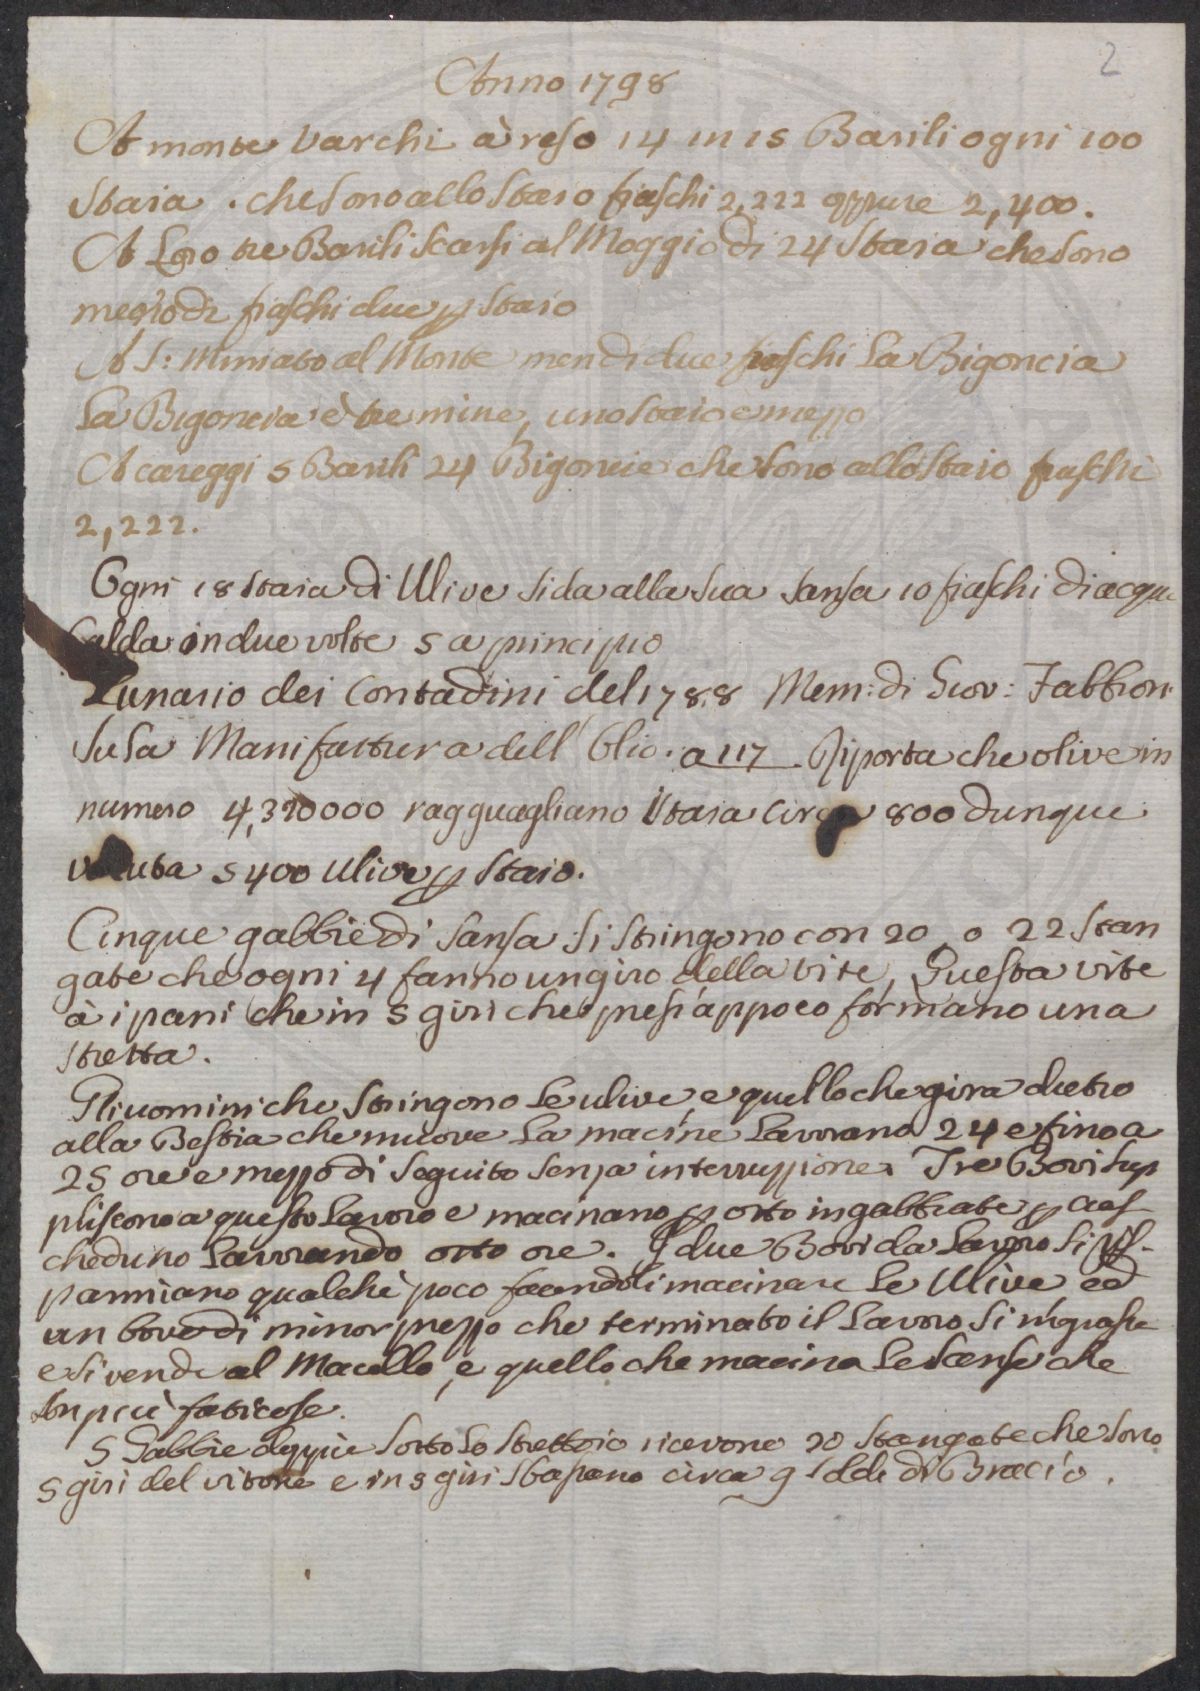 2
Anno 1798
A monte Varchi à reso 14 in 15 Barili ogni 100
Staia . che sono allo Staio fiaschi 2,222 oppure 2,400.
A Loro tre Barili scarsi al Moggio di 24 Staia che sono
meno di fiaschi due p Staio
A S: Miniato al Monte men di due fiaschi La Bigoncia
La Bigoncia è tre mine, uno staio e mezzo
A careggi 5 Barili 24 Bigoncie che sono allo Staio fiaschi
2,222.
Ogni 18 Staia di Ulive si da alla sua Sansa 10 fiaschi di acqua
calda in due volte 5 a principio
Lunario dei Contadini del 1788 Mem: di Giov: Fabbroni
su La Manifattura dell' Olio. a 117. Riporta che olive in
numero 4,320000 ragguagliano Staia circa 800 dunque
valuta 5400 Ulive p Staio.
Cinque gabbie di Sansa si stringono con 20 o 22 Stan
gate che ogni 4 fanno un giro della vite, Questa vite
à i pani che in 5 giri che presi appoco formano una
stretta.
Gli uomini che stringono Le ulive, e quello che gira dietro
alla Bestia che muove La macine Lavorano 24 e fino a
25 ore e mezzo di seguito senza interruzzione. Tre Bovi sup
pliscono a questo Lavoro e macinano p otto ingabbiate p cias
cheduno Lavorando otto ore. I due Bovi da Lavoro si ris-
parmiano qualche poco facendoli macinare Le Ulive ed
un bove di minor prezzo che terminato il Lavoro si ingrassa
e si vende al Macello, e quello che macina Le Sanse che
son più faticose.
5 Gabbie doppie sotto Lo Strettoio ricevono 20 Stangate che sono
5 giri del vitone e in 5 giri Stapano circa 9 Soldi di Braccio.